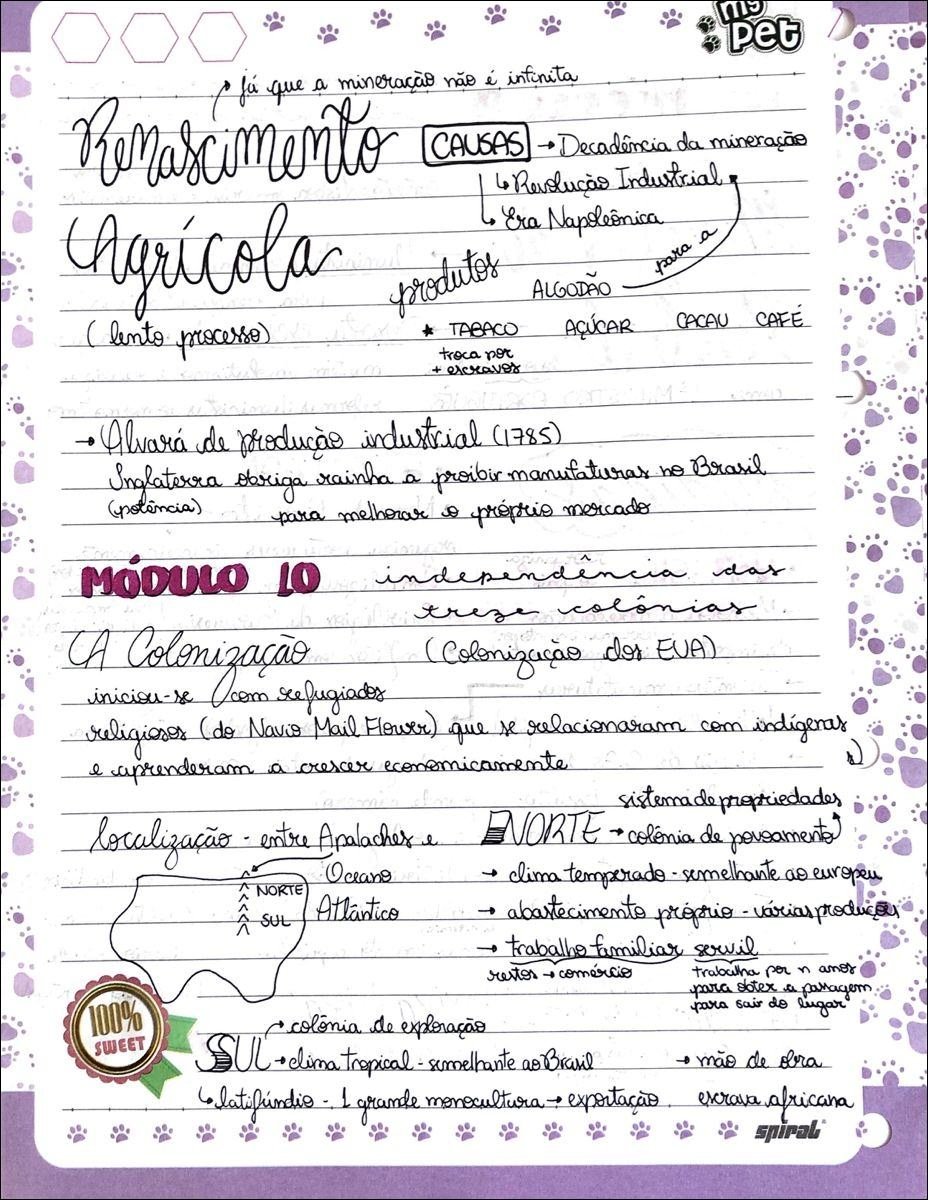 my
pet
Já que a mineração não é infinita
Renascimento
CAUSAS → Decadência da mineração
↳ Revolução Industrial
↳ Era Napoleônica
Agrícola
produtos
ALGODÃO
para a
(lento processo)
* TABACO AÇÚCAR CACAU CAFÉ
troca por
+ escravos
→ Alvará de produção industrial (1785)
Inglaterra obriga rainha a proibir manufaturas no Brasil
(potência) para melhorar o próprio mercado
MÓDULO 10 independência das
treze colônias
A Colonização (Colonização dos EUA)
iniciou-se com refugiados
religiosos (do Navio Mail Flower) que se relacionaram com indígenas
s)
e aprenderam a crescer economicamente
sistema de propriedades
localização - entre Apalaches e
Oceano
Atlântico
NORTE
SUL
NORTE → colônia de povoamento
→ clima temperado - semelhante ao europeu
→ abastecimento próprio - várias produções
→ trabalho familiar servil
restos → comércio
trabalha por n anos
para obter a passagem
para sair do lugar
100%
SWEET
colônia de exploração
SUL → clima tropical - semelhante ao Brasil → mão de obra
↳ latifúndio - 1 grande monocultura → exportação escrava africana
spiral